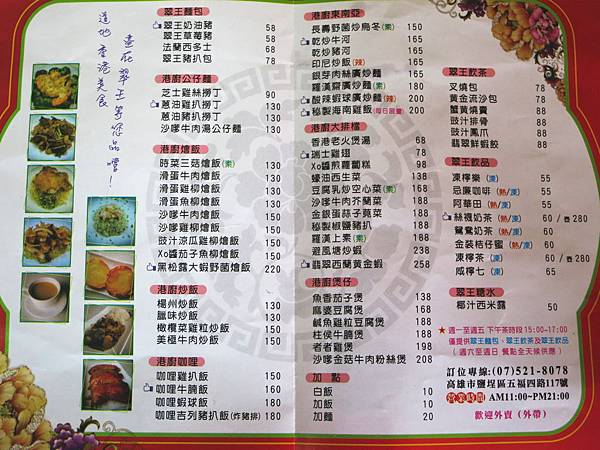 道地香港美食
盡在翠王等您品嚐！
翠王麵包
翠王奶油豬 58
翠王草莓豬 58
法蘭西多士 68
翠王豬扒包 78
港廚公仔麵
芝士雞絲撈丁 90
蔥油雞扒撈丁 130
蔥油豬扒撈丁 130
沙嗲牛肉湯公仔麵 130
港廚燴飯
時菜三菇燴飯(素) 130
滑蛋牛肉燴飯 130
滑蛋雞柳燴飯 130
滑蛋魚柳燴飯 130
沙嗲牛肉燴飯 150
沙嗲雞柳燴飯 150
豉汁涼瓜雞柳燴飯 150
Xo醬茄子魚柳燴飯 180
黑松露大蝦野菌燴飯 220
港廚炒飯
楊州炒飯 130
臘味炒飯 130
橄欖菜雞粒炒飯 150
美極牛肉炒飯 150
港廚咖哩
咖哩雞扒飯 150
咖哩牛腩飯 160
咖哩蝦球飯 180
咖哩吉列豬扒飯(炸豬排) 180
港廚東南亞
長壽野菌炒烏冬(素) 150
乾炒牛河 165
乾炒豬河 165
印尼炒飯(辣) 160
銀芽肉絲廣炒麵 160
羅漢齋廣炒麵(素) 180
酸辣蝦球廣炒麵(辣) 200
秘製海南雞飯(每日限量) 200
港廚大排檔
香港老火煲湯 68
瑞士雞翅 78
Xo醬煎蘿蔔糕 98
蠔油西生菜 138
豆腐乳炒空心菜(素) 168
沙嗲牛肉芥蘭菜 188
金銀蛋蒜子莧菜 188
秘製椒鹽豬扒 188
羅漢上素(素) 188
避風塘炒蝦 238
翡翠西蘭黃金蝦 258
港廚煲仔
魚香茄子煲 138
麻婆豆腐煲 138
鹹魚雞粒豆腐煲 188
柱侯牛腩煲 188
者者雞煲 198
沙嗲金菇牛肉粉絲煲 208
加點
白飯 10
加飯 10
加麵 20
翠王飲茶
叉燒包 78
黃金流沙包 78
蟹黃燒賣 88
豉汁排骨 88
豉汁鳳爪 88
翡翠鮮蝦餃 88
翠王飲品
凍檸樂(凍) 55
忌廉咖啡(熱/凍) 55
阿華田(熱/凍) 55
絲襪奶茶(凍) 60/壺280
鴛鴦奶茶(熱/凍) 60
金裝桔仔蜜(熱/凍) 60
凍檸茶(凍) 60/壺280
咸檸七(凍) 65
翠王糖水
椰汁西米露 50
★週一至週五 下午茶時段15:00~17:00
僅提供翠王麵包、翠王飲茶及翠王飲品
(週六至週日 餐點全天候供應)
訂位專線:(07)521-8078
高雄市鹽埕區五福四路117號
營業時間 AM11:00~PM21:00
歡迎外賣(外帶)